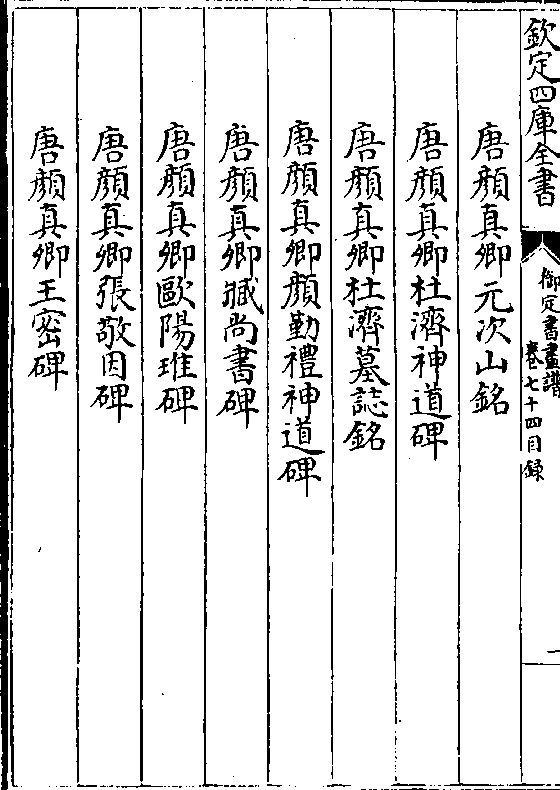 欽定四庫全書
御定書畫譜
卷七十四目録
一
唐顔真卿元次山銘
唐顔真卿杜濟神道碑
唐顔真卿杜濟墓誌銘
唐顔真卿顔勤禮神道碑
唐顔真卿臧尚書碑
唐顔真卿歐陽琟碑
唐顔真卿張敬因碑
唐顔真卿王密碑